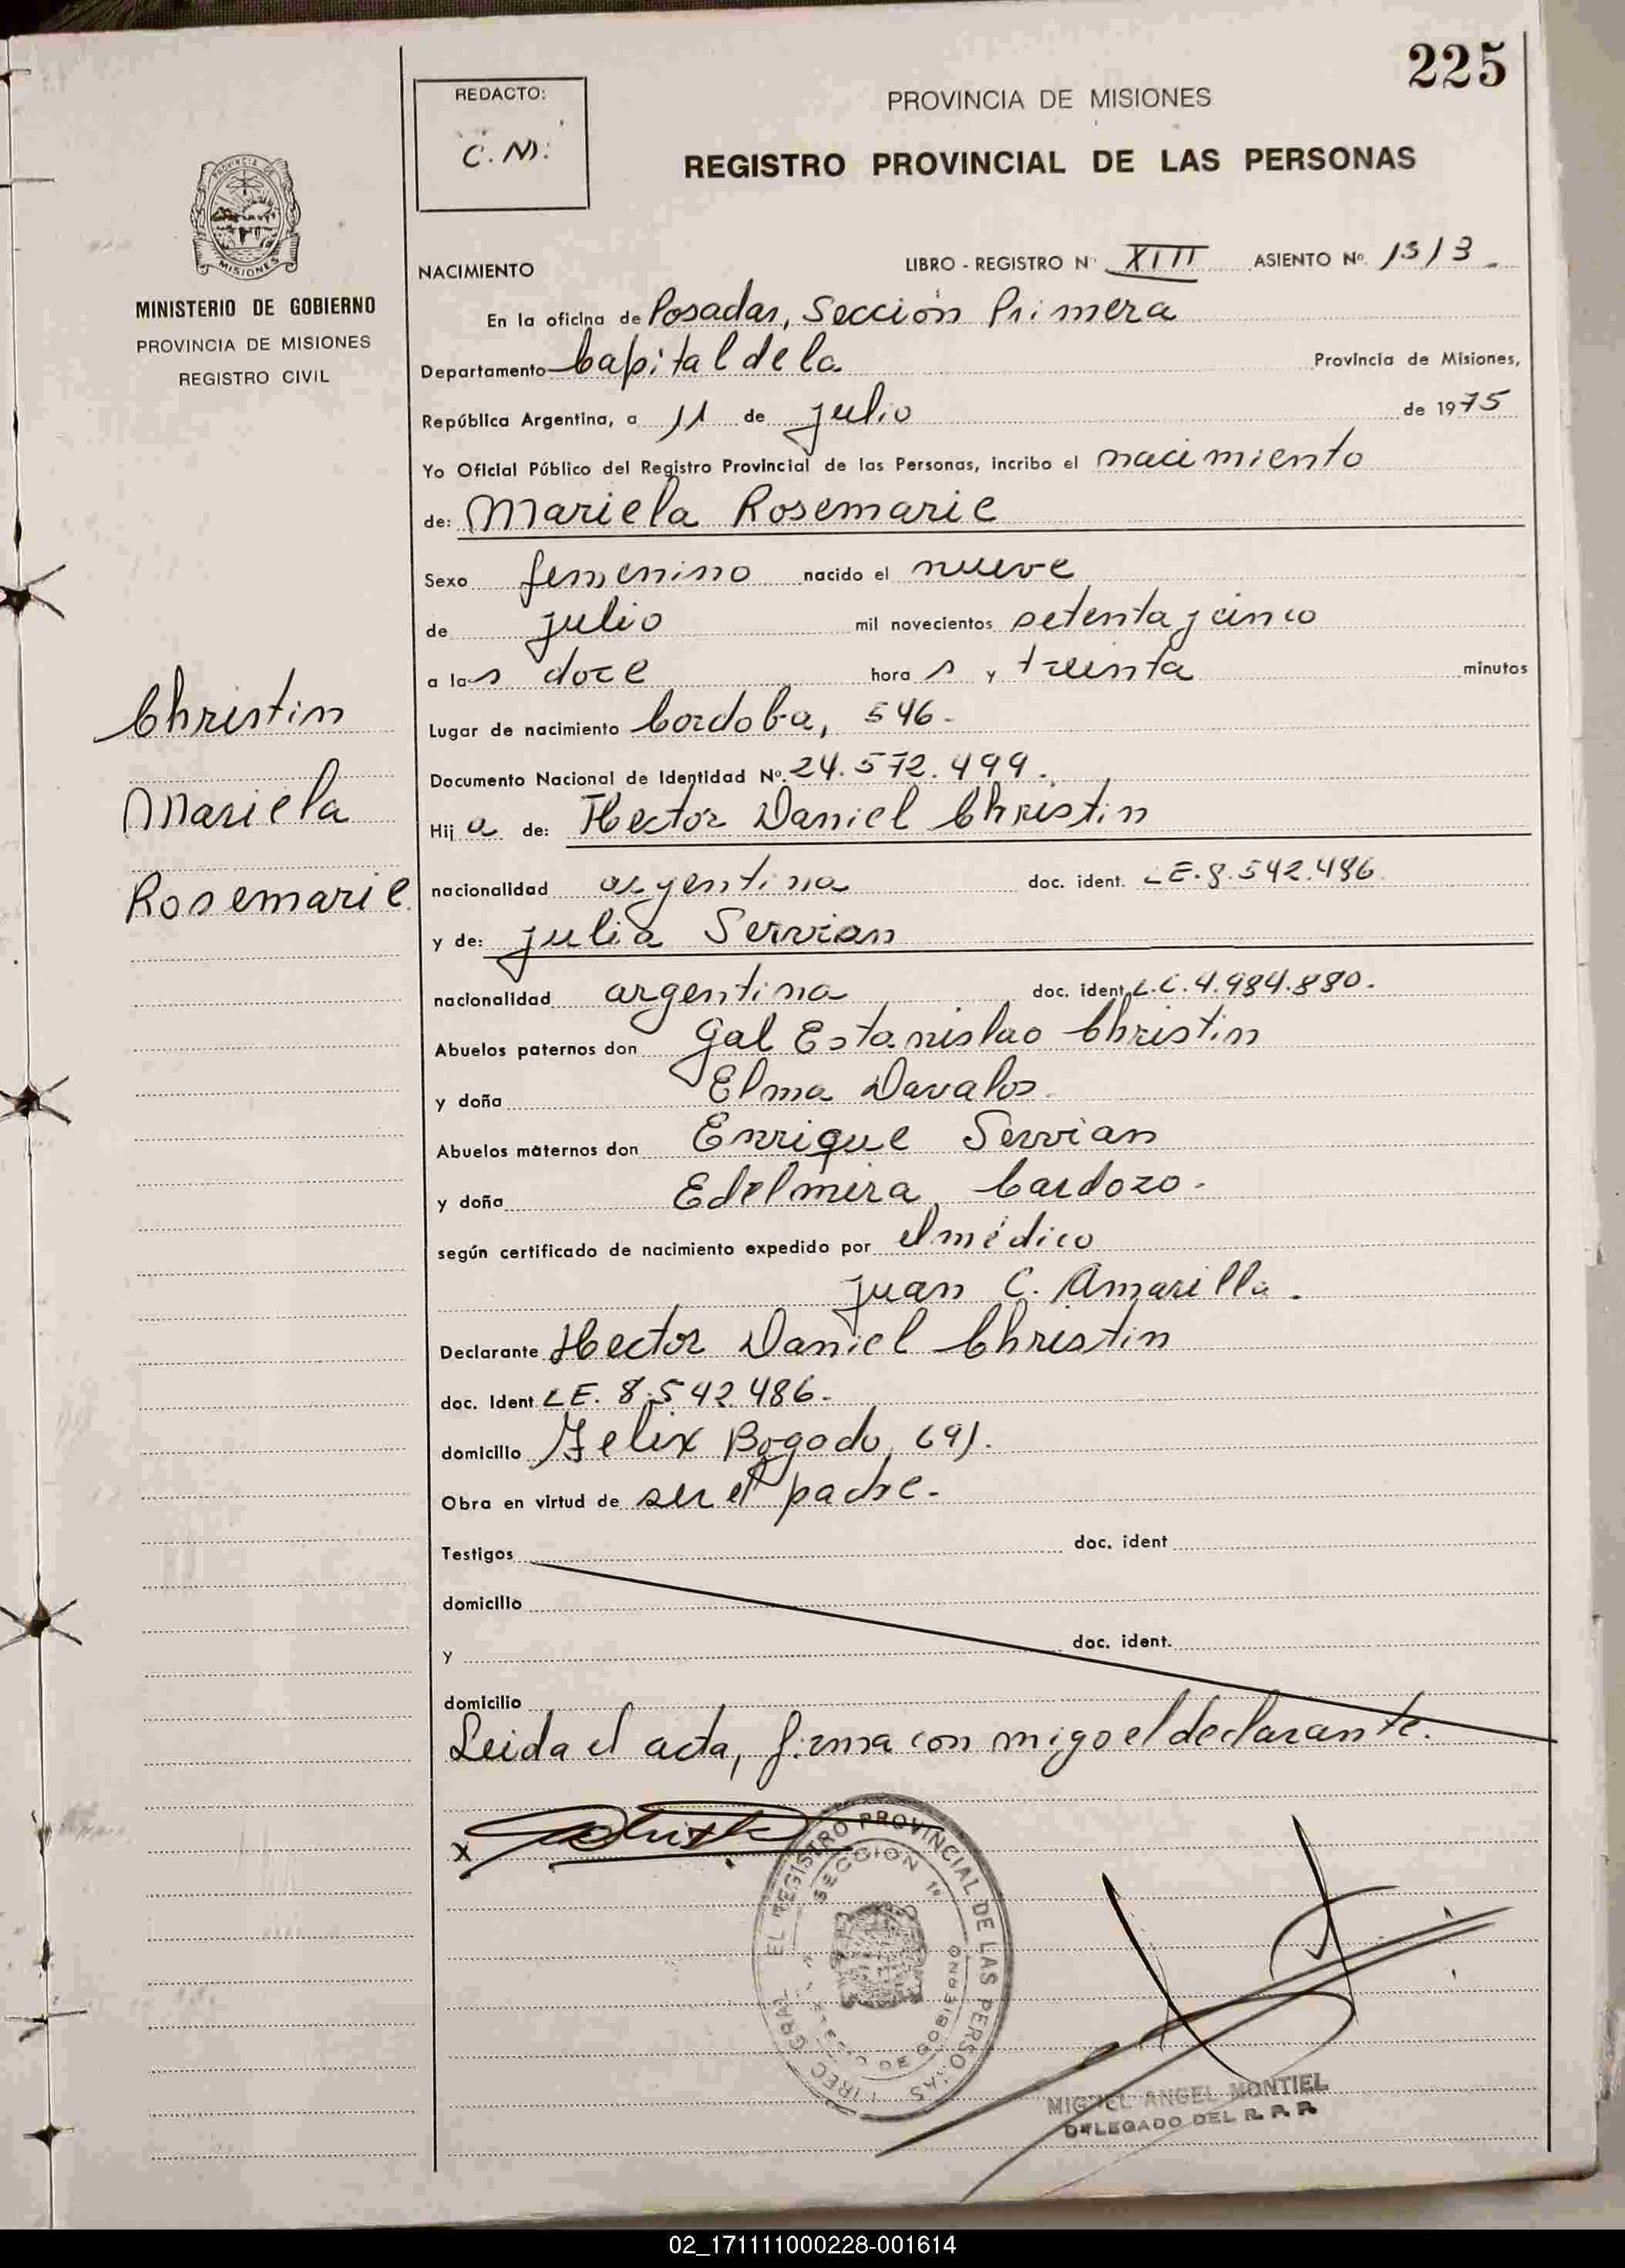 225
REDACTO:
C. M:
PROVINCIA DE MISIONES
REGISTRO PROVINCIAL DE LAS PERSONAS
MISIONES
MINISTERIO DE GOBIERNO
PROVINCIA DE MISIONES
REGISTRO CIVIL
NACIMIENTO LIBRO - REGISTRO Nº XIII ASIENTO Nº 1313
En la oficina de Posadas, Sección Primera
Departamento Capital de la Provincia de Misiones,
República Argentina, a 11 de julio de 1975
Yo Oficial Público del Registro Provincial de las Personas, incribo el nacimiento
de: Mariela Rosemarie
Sexo femenino nacido el nueve
de julio mil novecientos setenta y cinco
a las doce horas y treinta minutos
Lugar de nacimiento Cordoba, 546.
Documento Nacional de Identidad Nº 24.572.499.
Hija de: Hector Daniel Christin
nacionalidad argentina doc. ident. LE.8.542.486
y de: Julia Servian
nacionalidad argentina doc. ident. L.C.4.984.880.
Abuelos paternos don Gal Estanislao Christin
y doña Elma Davalos
Abuelos maternos don Enrique Servian
y doña Edelmira Cardozo.
según certificado de nacimiento expedido por el médico
Juan C. Amarilla.
Declarante Hector Daniel Christin
doc. Ident LE. 8.542.486.
domicilio Felix Bogado, 691.
Obra en virtud de ser el padre.
Testigos doc. ident
domicilio
y doc. ident.
domicilio
Leida el acta, firma con migo el declarante.
Christin
Mariela
Rosemarie
X
EL REGISTRO PROVINCIAL DE LAS PERSONAS
SECCION 1ª
DE GOBIERNO
MIGUEL ANGEL MONTIEL
DELEGADO DEL R. P. P.
02_171111000228-001614